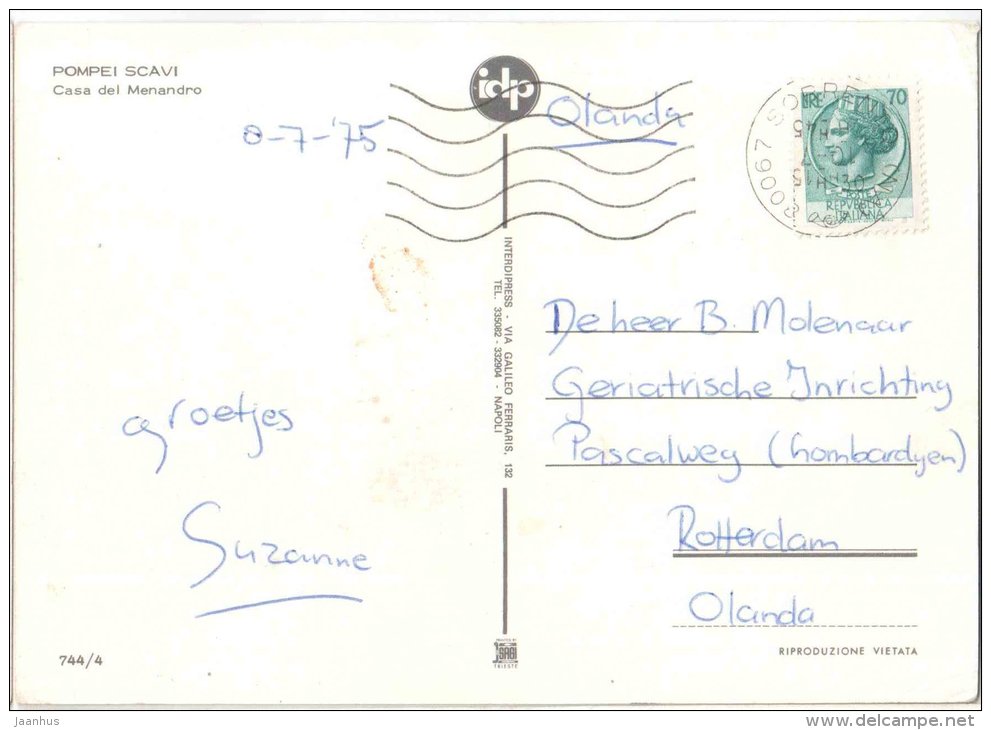 POMPEI SCAVI
Casa del Menandro
8-7-'75
groetjes
Suzanne
744/4
idp
INTERDIPRESS - VIA GALILEO FERRARIS, 132
TEL. 335082 - 332904 - NAPOLI
PRINTED BY
SAGI
TRIESTE
Olanda
LIRE 70
REPVBBLICA
ITALIANA
80067 SORRENTO
De heer B. Molenaar
Geriatrische Inrichting
Pascalweg (Lombardyen)
Rotterdam
Olanda
RIPRODUZIONE VIETATA
Jaanhus
www.delcampe.net